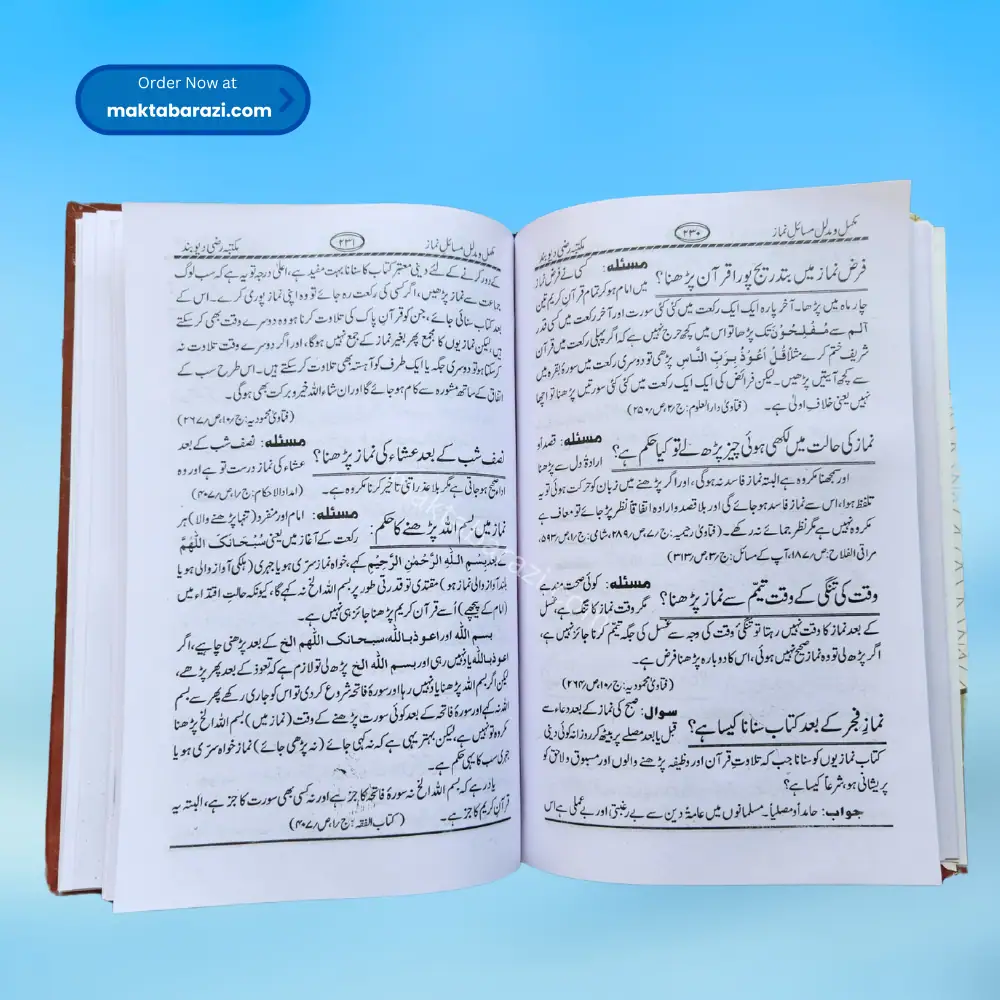 Order Now at
maktabarazi.com
مکمل و مدلل مسائل نماز ۲۳۰ مکتبہ رضی دیوبند
فرض نماز میں بتدریج پورا قرآن پڑھنا؟ مسئلہ: کسی نے فرض نماز
میں امام ہو کر تمام قرآن کریم تین
چار ماہ میں پڑھا۔ آخر پارہ ایک ایک رکعت میں کئی کئی سورت اور آخر رکعت میں کسی قدر
آلم سے مُفْلِحُوْنَ تک پڑھا تو اس میں کچھ حرج نہیں ہے کہ اگر پہلی رکعت میں قرآن
شریف ختم کرے مثلاً قُلْ اَعُوْذُ بِرَبِّ النَّاسِ پڑھی تو دوسری رکعت میں سورۂ بقرہ میں
سے کچھ آیتیں پڑھیں۔ لیکن فرائض کی ایک ایک رکعت میں کئی کئی سورتیں پڑھنا تو اچھا
نہیں یعنی خلاف اولیٰ ہے۔ (فتاویٰ دارالعلوم: ج/۲، ص/۲۵۰)
نماز کی حالت میں لکھی ہوئی چیز پڑھ لے تو کیا حکم ہے؟ مسئلہ: قصداً و
ارادۃً دل سے پڑھنا
اور سمجھنا مکروہ ہے البتہ نماز فاسد نہ ہوگی، اور اگر پڑھنے میں زبان کو حرکت ہوئی تو یہ
تلفظ ہوا، اس سے نماز فاسد ہو جائے گی اور بلا قصد و ارادہ اتفاقاً نظر پڑ جائے تو معاف ہے
مکروہ نہیں ہے مگر نظر جمائے نہ رکھے۔ (فتاویٰ رحیمیہ: ج/۷، ص/۲۸۹، شامی: ج/۱، ص/۵۹۳،
مراقی الفلاح: ص/۱۸۷، آپ کے مسائل: ج/۳، ص/۳۱۳)
وقت کی تنگی کے وقت تیمّم سے نماز پڑھنا؟ مسئلہ: کوئی صحت مند ہے
مگر وقت نماز کا تنگ ہے، غسل
کے بعد نماز کا وقت نہیں رہتا تو تنگیٔ وقت کی وجہ سے غسل کی جگہ تیمم کرنا جائز نہیں ہے،
اگر پڑھ لی تو وہ نماز صحیح نہیں ہوئی، اس کا دوبارہ پڑھنا فرض ہے۔
(فتاویٰ محمودیہ: ج/۱۰، ص/۲۶۴)
نمازِ فجر کے بعد کتاب سنانا کیسا ہے؟ سوال: صبح کی نماز کے بعد دعاء سے
قبل یا بعد مصلے پر بیٹھ کر روزانہ کوئی دینی
کتاب نمازیوں کو سنانا جب کہ تلاوتِ قرآن اور وظیفہ پڑھنے والوں اور مسبوق و لاحق کو
پریشانی ہو، شرعاً کیسا ہے؟
جواب: حامداً و مصلیاً۔ مسلمانوں میں عامۃً دین سے بے رغبتی اور بے عملی ہے اس
مکمل و مدلل مسائل نماز ۲۳۱ مکتبہ رضی دیوبند
کے دور کرنے کے لئے دینی معتبر کتاب کا سنانا بہت مفید ہے، اعلیٰ درجہ تو یہ ہے کہ سب لوگ
جماعت سے نماز پڑھیں، اگر کسی کی رکعت رہ جائے تو وہ اپنی نماز پوری کرے۔ اس کے
بعد کتاب سنائی جائے، جن کو قرآن پاک کی تلاوت کرنا ہو وہ دوسرے وقت بھی کر سکتے
ہیں لیکن نمازیوں کا مجمع پھر بغیر نماز کے جمع نہیں ہوگا، اور اگر دوسرے وقت تلاوت نہ
کر سکتا ہو تو دوسری جگہ یا ایک طرف کو آہستہ بھی تلاوت کر سکتے ہیں۔ اس طرح سب کے
اتفاق کے ساتھ مشورہ سے کام ہو جائے گا اور ان شاء اللہ خیر و برکت بھی ہوگی۔
(فتاویٰ محمودیہ: ج/۱۰، ص/۲۶۷)
نصف شب کے بعد عشاء کی نماز پڑھنا؟ مسئلہ: نصف شب کے بعد
عشاء کی نماز درست تو ہے اور وہ
ادا صحیح ہو جاتی ہے مگر بلا عذر اتنی تاخیر کرنا مکروہ ہے۔ (امداد الاحکام: ج/۱، ص/۴۰۷)
نماز میں بسم اللہ پڑھنے کا حکم: مسئلہ: امام اور منفرد (تنہا پڑھنے والا) ہر
رکعت کے آغاز میں یعنی سُبْحَانَکَ اللّٰھُمَّ
کے بعد بِسْمِ اللّٰهِ الرَّحْمٰنِ الرَّحِيْمِ کہے، خواہ نماز سرّی ہو یا جہری (ہلکی آواز والی ہو یا
بلند آواز والی نماز ہو) مقتدی تو قدرتی طور پر بسم اللہ الخ نہ کہے گا، کیونکہ حالتِ اقتداء میں
(امام کے پیچھے) اُسے قرآن کریم پڑھنا جائز ہی نہیں ہے۔
بسم اللہ اور اعوذ باللہ، سبحانک اللھم الخ کے بعد پڑھنی چاہیے، اگر
اعوذ باللہ یاد نہیں رہی اور بسم اللہ الخ پڑھ لی تو لازم ہے کہ تعوذ کے بعد پھر پڑھے،
لیکن اگر بسم اللہ پڑھنا یاد نہیں رہا اور سورۂ فاتحہ شروع کر دی تو اس کو جاری رکھے پھر سے بسم
اللہ نہ کہے اور سورۂ فاتحہ کے بعد کوئی سورت پڑھنے کے وقت (نماز میں) بسم اللہ الخ پڑھنا
مکروہ تو نہیں ہے، لیکن بہتر یہی ہے کہ نہ کہی جائے (نہ پڑھی جائے) نماز خواہ سرّی ہو یا
جہری سب کا یہی حکم ہے۔
یاد رہے کہ بسم اللہ الخ نہ سورۂ فاتحہ کا جز ہے اور نہ کسی بھی سورت کا جز ہے، البتہ یہ
قرآن کریم کا جز ہے۔ (کتاب الفقہ: ج/۱، ص/۴۰۷)